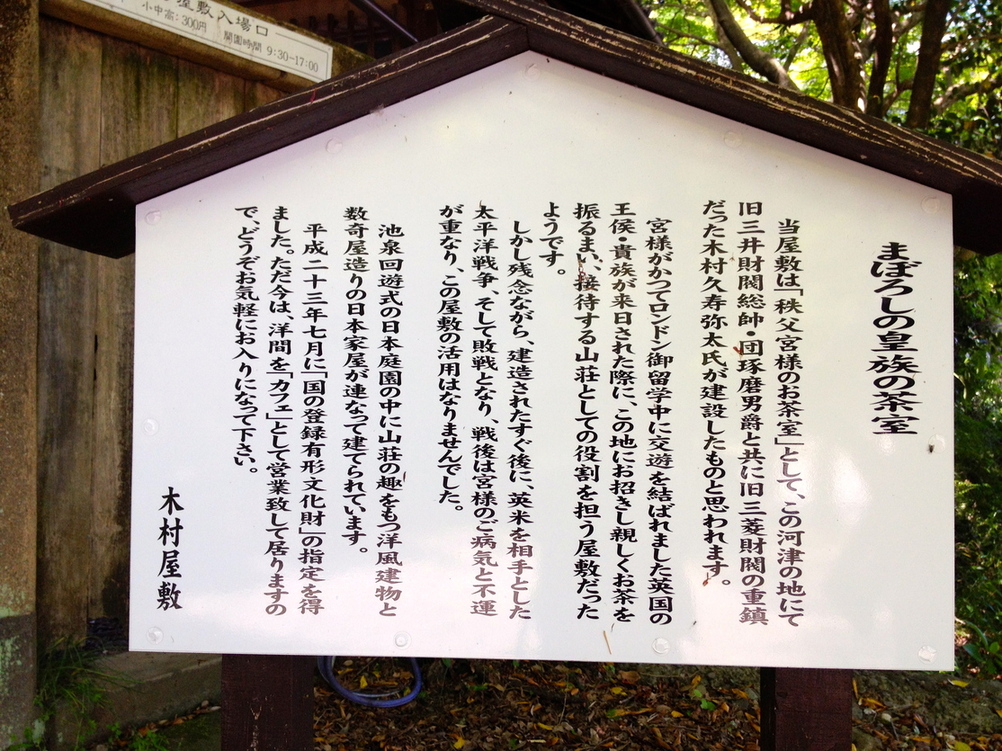 屋敷入場口
小中高:300円 開園時間 9:30~17:00
まぼろしの皇族の茶室
当屋敷は「秩父宮様のお茶室」として、この河津の地にて
旧三井財閥総帥・団琢磨男爵と共に旧三菱財閥の重鎮
だった木村久寿弥太氏が建設したものと思われます。
宮様がかつてロンドン御留学中に交遊を結ばれました英国の
王侯・貴族が来日された際に、この地にお招きし親しくお茶を
振るまい、接待する山荘としての役割を担う屋敷だった
ようです。
しかし残念ながら、建造されたすぐ後に、英米を相手とした
太平洋戦争、そして敗戦となり、戦後は宮様のご病気と不運
が重なり、この屋敷の活用はなりませんでした。
池泉回遊式の日本庭園の中に山荘の趣をもつ洋風建物と
数奇屋造りの日本家屋が連なって建てられています。
平成二十三年七月に「国の登録有形文化財」の指定を得
ました。ただ今は、洋間を「カフェ」として営業致して居りますの
で、どうぞお気軽にお入りになって下さい。
木村屋敷